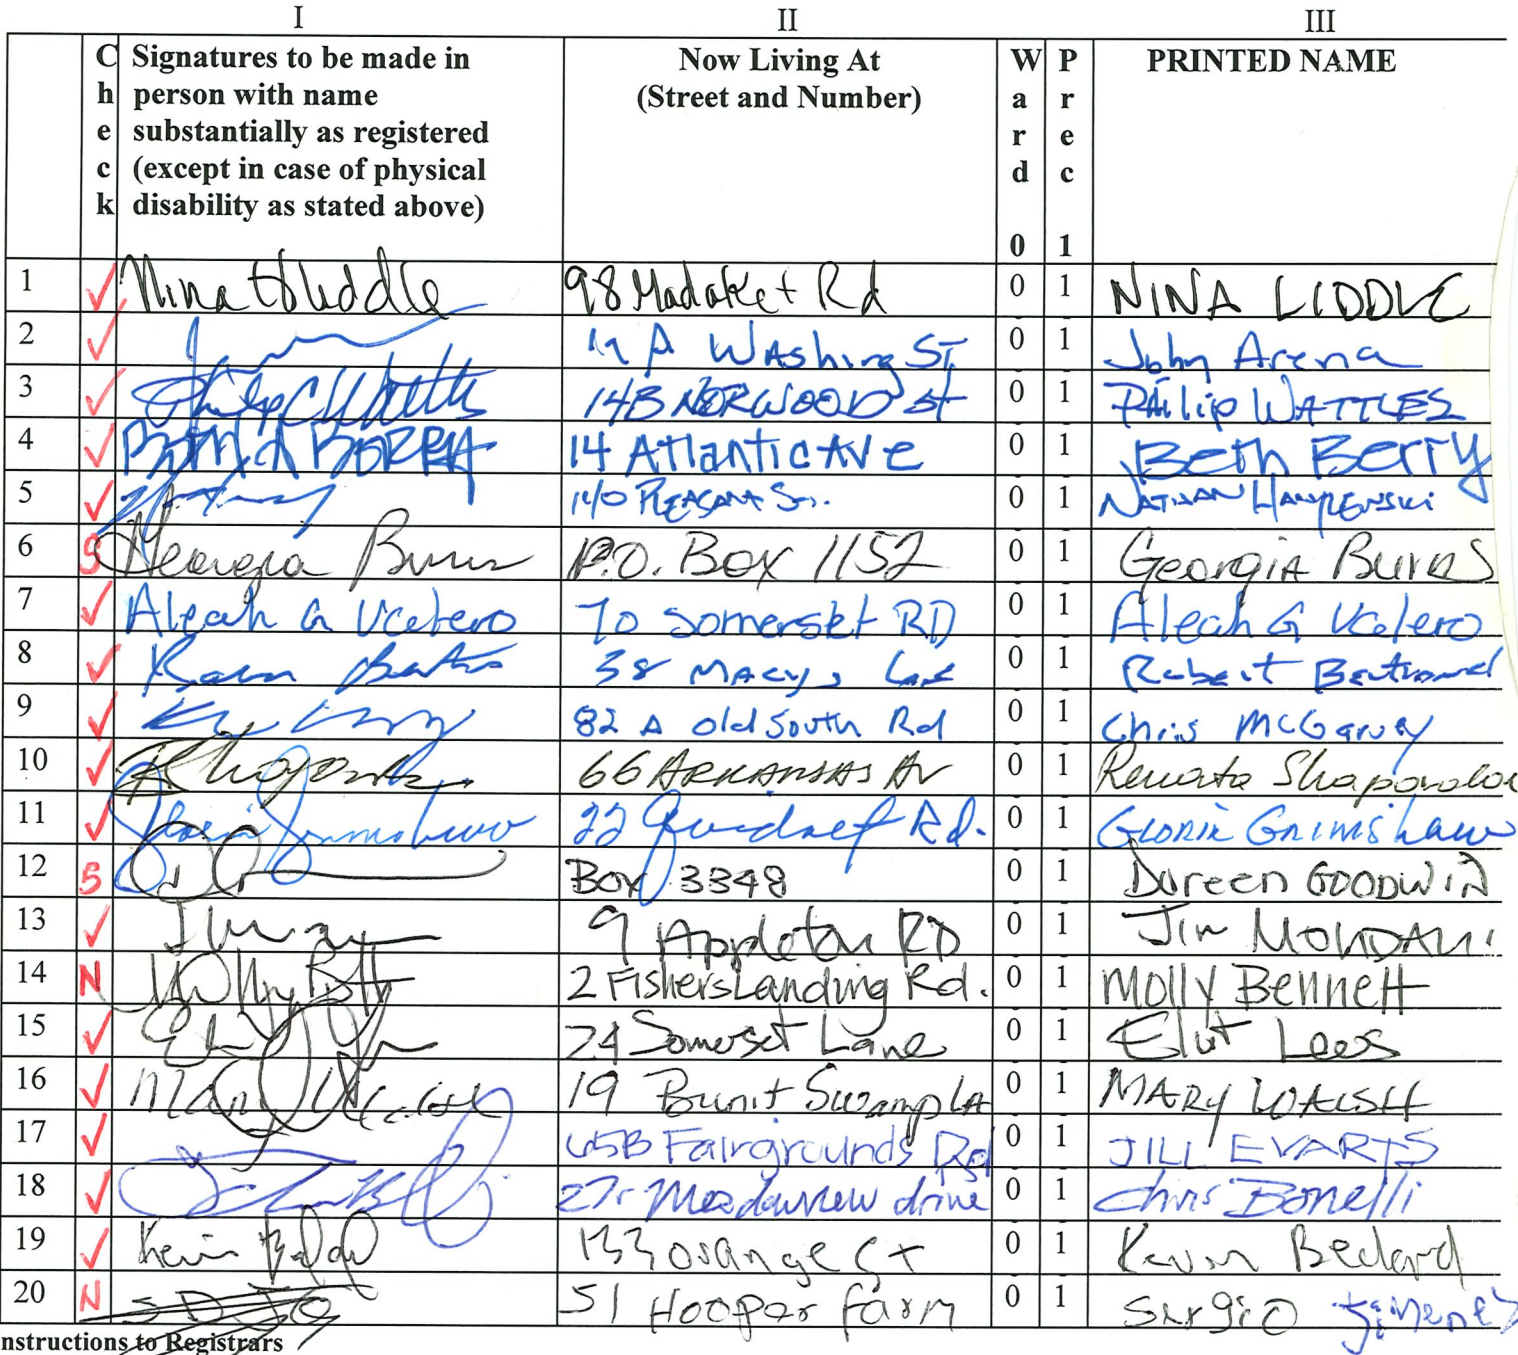 I II III
Check Signatures to be made in person with name substantially as registered (except in case of physical disability as stated above) Now Living At (Street and Number) Ward 0 Prec 1 PRINTED NAME
1 ✓ Nina Liddle 98 Madaket Rd 0 1 NINA LIDDLE
2 ✓ 19 A Washing ST 0 1 John Arena
3 ✓ Philip C Wattles 14B NORWOOD St 0 1 Philip WATTLES
4 ✓ 14 Atlantic Ave 0 1 Beth Berry
5 ✓ 140 PLEASANT ST. 0 1 NATHAN
6 S Georgia Burns P.O. Box 1152 0 1 Georgia Burns
7 ✓ Aleah G Valero 70 Somerset RD 0 1 Aleah G Valero
8 ✓ 38 MACYS 0 1 Robert
9 ✓ 82 A old South Rd 0 1 Chris McGarvey
10 ✓ 66 ARKANSAS Av 0 1 Renata
11 ✓ Gloria Grimshaw 22 Quidnet Rd. 0 1 Gloria Grimshaw
12 S Box 3348 0 1 Doreen GOODWIN
13 ✓ 9 Appleton RD 0 1 Jim
14 N 2 Fishers Landing Rd. 0 1 Molly Bennett
15 ✓ 24 Somerset Lane 0 1 Lees
16 ✓ Mary Walsh 19 Burnt Swamp LA 0 1 MARY WALSH
17 ✓ 65B Fairgrounds Rd 0 1 JILL EVARTS
18 ✓ Meadowview drive 0 1 Chris Bonelli
19 ✓ Kevin 133 orange St 0 1 Kevin Bedard
20 N 51 Hooper farm 0 1 Sergio Jimenez
nstructions to Registrars